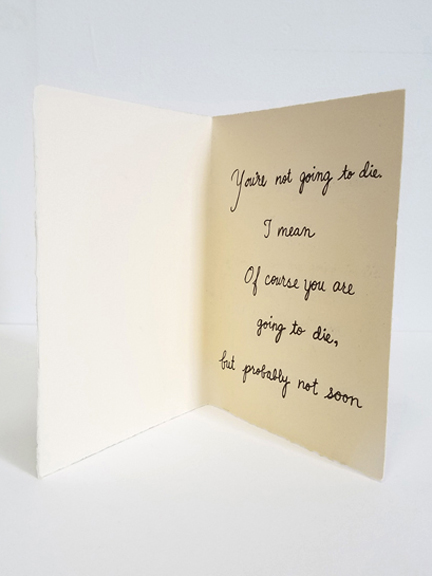 You're not going to die.
I mean
Of course you are
going to die,
but probably not soon